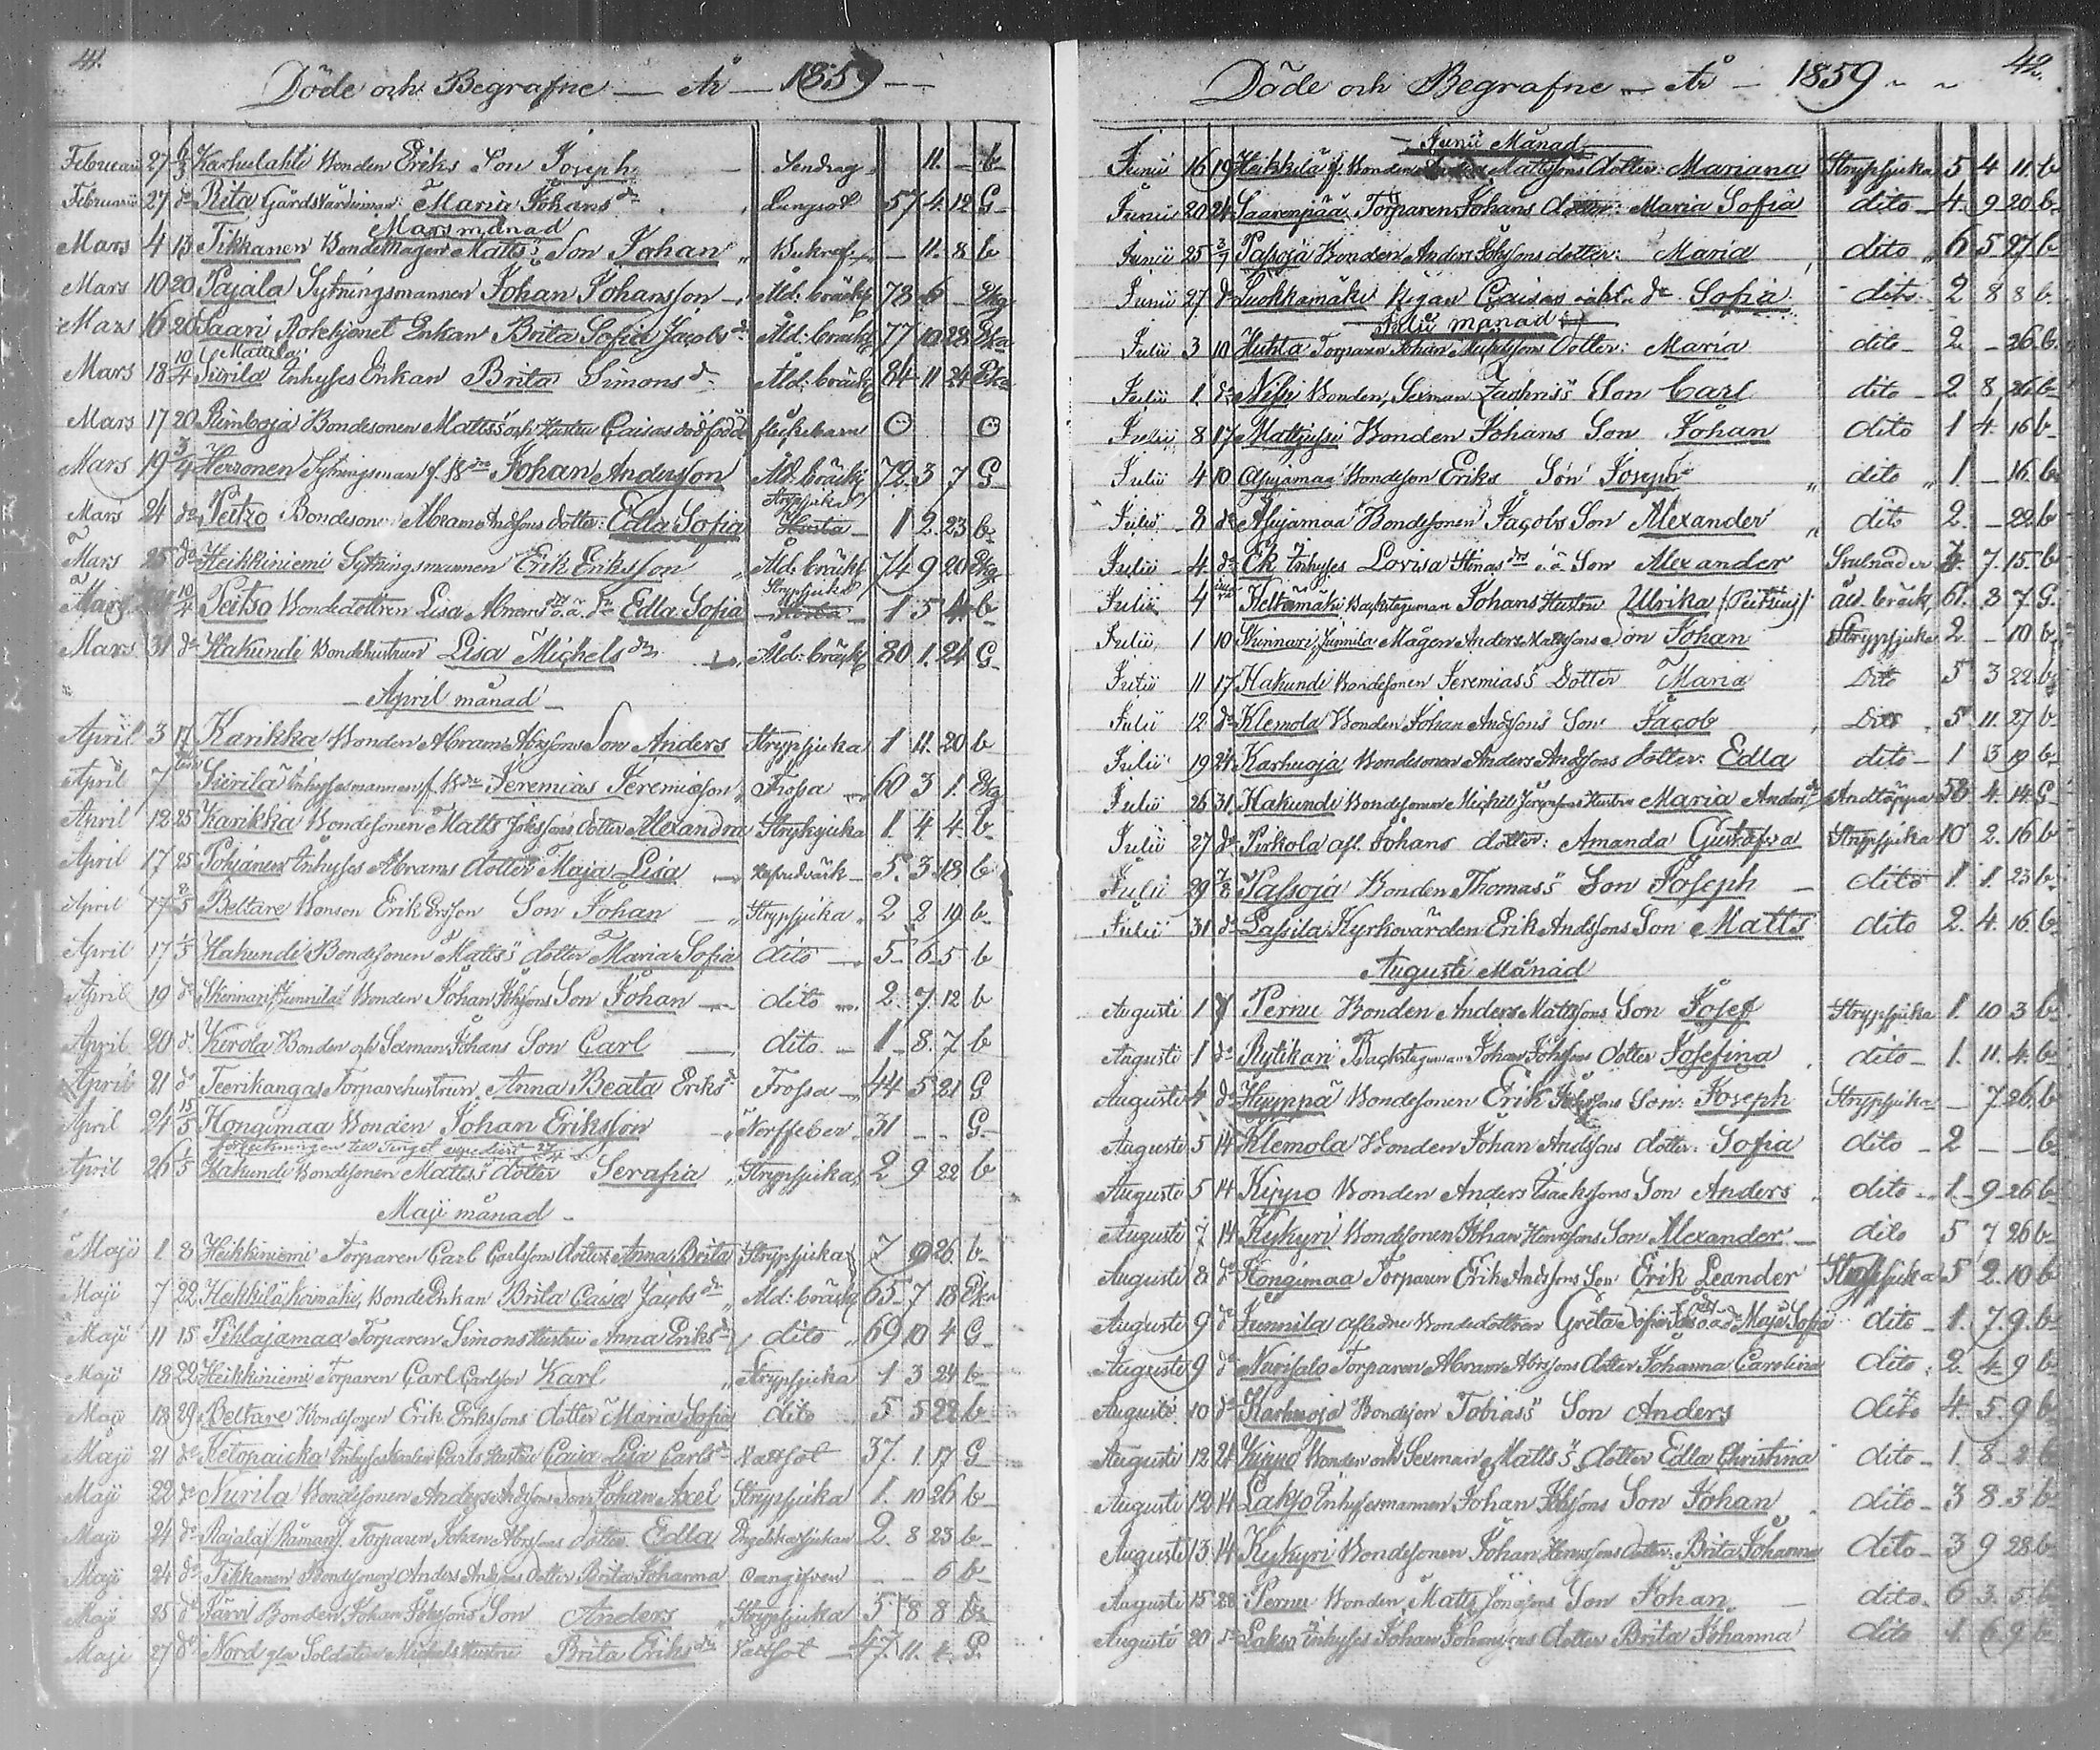 41.
Döde och Begrafne — År — 1859 —
Februarii 27 6/3 Karhulahti Bonden Eriks Son Joseph Sendrag 11. - b
Februarii 27 do Rita Gårdsvärdinnan Maria Johans dr Lungsot 57 4 12 G
Mars månad
Mars 4 13 Tikkanen Bondemågen Matts's Son Johan Bukref - 11. 8 b
Mars 10 20 Pajala Sytningsmannen Johan Johansson Åld: bräckl 78 6 - Ekg
Mars 16 20 Saari Rotehjonet Enkan Brita Sofia Jacobs dr Åld: bräckl 77 10 28 Eka
Mars 18 10/4 Siirilä (Mattila) Inhyses Enkan Brita Simons dr Åld: bräckl 84 11 24 Eka
Mars 17 20 Bondesonen Matts's och Hustru Caisas dödfödde flickebarn
Mars 19 3/4 Herronen Sytningsman f. Bde Johan Andersson Åld. bräckl 72. 3 7 G
Mars 24 do Peitzo Bondeson Abram Andssons dotter: Edla Sofia Strypsjuka 1 2. 23 b
Mars 25 do Heikkiniemi Sytningsmannen Erik Eriksson Åld. bräckl 74 9 20 Ekg
Mars 10/4 Peitso Bondedottren Lisa Abrams dr o.ä. dr Edla Sofia Strypsjuka 1 5 4 b
Mars 31 do Hakundi Bondehustrun Lisa Michels dr Åld: bräckl 80. 1. 24 G
April månad
April 3 17 Karikka Bonden Abram Abrssons Son Anders Strypsjuka 1 11. 20 b
April 7 Siirilä Inhysesmannen f. Bde Jeremias Jeremiasson Frossa 60 3 1. Ekg
April 12 25 Karikka Bondesonen Matts Johssons dotter Alexandra Strypsjuka 1. 4 4. b
April 17 25 Pohjanen Inhyses Abrams dotter Maja Lisa Hufvudvärk 5. 3 18. b
April 17 8/5 Beltare Bonden Erik Erssen Son Johan Strypsjuka 2 2 19 b
April 17 1/5 Hakundi Bondesonen Matts's dotter Maria Sofia dito 5 6 5 b
April 19 do Skinnari/Junnila/ Bonden Johan Johssons Son Johan dito 2. 7. 12 b
April 20 do Kerola Bonden och Sexman Johans Son Carl dito 1 8. 7 b
April 21 do Teerikangas Torparehustrun Anna Beata Eriks dr Frossa 44 5 21 G
April 24 15/5 Hongimaa Bonden Johan Eriksson Nerffeber 31 - - G
förteckningen till Tinget expedierat 27/4
April 26 1/5 Hakundi Bondesonen Matts's dotter Serafia Strypsjuka 2 9 22 b
Maji månad
Maji 1 8 Heikkiniemi Torparen Carl Carlssons dotter Anna Brita Strypsjuka 7 9 26. b
Maji 7 22 Heikkilä, kirimäki, Bonde Enkan Brita Caisa Jacobs dr Åld: bräckl 65 7 18 Eka
Maji 11 15 Pihlajamaa Torparen Simons Hustru Anna Eriks dr dito 69 10 4 G
Maji 18 22 Heikkiniemi Torparen Carl Carlsson Karl Strypsjuka 1 3 24 b
Maji 18 29 Beltare Bondesonen Erik Erikssons dotter Maria Sofia dito 5 5 22 b
Maji 21 do Ketonaicka Inhyseskarlen Carls Hustru Caisa Lisa Carls dr Vattsot 37. 1. 17 G
Maji 22 do Nurila Bondesonen Anders Andssons Son Johan Axel Strypsjuka 1. 10 26 b
Maji 24 do Rajala /Råman/ Torparen Johan Abrssons dotter Edla Engelska sjukan 2. 8 23 b
Maji 24 do Tikkanen Bondesonen Anders Andssons dotter Brita Johanna oangifven - - 6 b
Maji 25 do Järvi Bonden Johan Johssons Son Anders Strypsjuka 5 8 8 b
Maji 27 do Nord gla Soldaten Michels Hustru Brita Eriks dr Vattsot 47. 11. 4. G
42.
Döde och Begrafne — År — 1859
Junii Månad
Junii 16 19 Heikkilä f. Bonden Mattssons dotter: Mariana Strypsjuka 5 4 11. b
Junii 20 24 Saarenpää, Torparen Johans dotter: Maria Sofia dito 4. 9 20 b
Junii 25 3/7 Passoja Bonden Anders Johssons dotter: Maria dito 6 5 27 b
Junii 27 do Luokkamäki Pigan Caisas oäkt. dr Sofia dito 2 8 8 b
Julii månad
Julii 3 10 Huhta Torparen Johan dotter: Maria dito 2 - 26 b.
Julii 1. do Bonden, Sexman Zachris's Son Carl dito 2 8 26 b
Julii 8 17 Bonden Johans Son Johan dito 1 4. 16 b
Julii 4 10 Asujamaa Bondeson Eriks Son Joseph dito 1. - 16. b
Julii 8 do Asujamaa Bondesonen Jacobs Son Alexander dito 2. - 22 b
Julii 4 do Ek Inhyses Lovisa Stinas drs o.ä Son Alexander 7. 15. b
Julii 4 Keltamäki Backstuguman Johans Hustru Ulrika ål. bräckl 61. 8 7 G.
Julii 1 10 Skinnari, Junnila Mågen Anders Mattssons Son Johan Strypsjuka 2. - 10 b
Julii 11 17 Hakundi Bondesonen Jeremias's Dotter Maria Dito 5 3 22. b
Julii 12 do Klemola Bonden Johan Andssons Son Jacob Dito 5 11. 27 b
Julii 19 24 Karhuoja Bondesonen Anders Andssons dotter: Edla dito 1 3 19 b
Julii 26 31 Hakundi Bondesonen Michel Hustru Maria Anders dr Andtäppa 58 4. 14. G
Julii 27 do Pirkola afl. Johans dotter: Amanda Gustafva Strypsjuka 10 2. 16 b
Julii 29 7/8 Passoja Bonden Thomas's Son Joseph dito 1. 1. 23 b
Julii 31 do Lassila Kyrkovärden Erik Andssons Son Matts dito 2. 4. 16. b
Augusti Månad
Augusti 1 7 Pernu Bonden Anders Mattssons Son Josef Strypsjuka 1. 10 3 b
Augusti 1 do Rytikari Backstuguman Johan Johssons dotter Josefina dito 1. 11. 4. b
Augusti 4 do Huyppä Bondesonen Erik Johssons Son: Joseph Strypsjuka - 7 26. b
Augusti 5 14 Klemola Bonden Johan Andssons dotter: Sofia dito 2 - - b
Augusti 5 14 Kippo Bonden Anders Isackssons Son Anders dito 1. 9 26 b
Augusti 7 14 Kykyri Bondesonen Johan Henrssons Son Alexander dito 5 7 26 b
Augusti 8 do Hongimaa Torparen Erik Andssons Son Erik Leander Strypsjuka 5 2. 10 b
Augusti 9 do Junnila aflidne Bondedottren Greta Sofia drs o.ä. dr Maja Sofia dito 1. 7. 9. b
Augusti 9 do Nurisalo Torparen Abram Abrssons dotter Johanna Carolina dito 2. 4 9 b
Augusti 10 do Karhuoja Bondeson Tobias's Son Anders dito 4. 5. 9 b
Augusti 12 24 Kippo Bonden och Sexman Matts's dotter Edla Christina dito 1. 8 2 b
Augusti 12 14 Lakso Inhysesmannen Johan Johssons Son Johan dito 3 8. 3 b
Augusti 13 14 Kykyri Bondesonen Johan Henrssons dotter: Brita Johanna dito 3 9 28 b
Augusti 15 28 Pernu Bonden Matts Jönssons Son Johan dito 6 3. 5. b
Augusti 20 do Lakso Inhyses Johan Johanssons dotter Brita Johanna dito 1. 6. 9. b